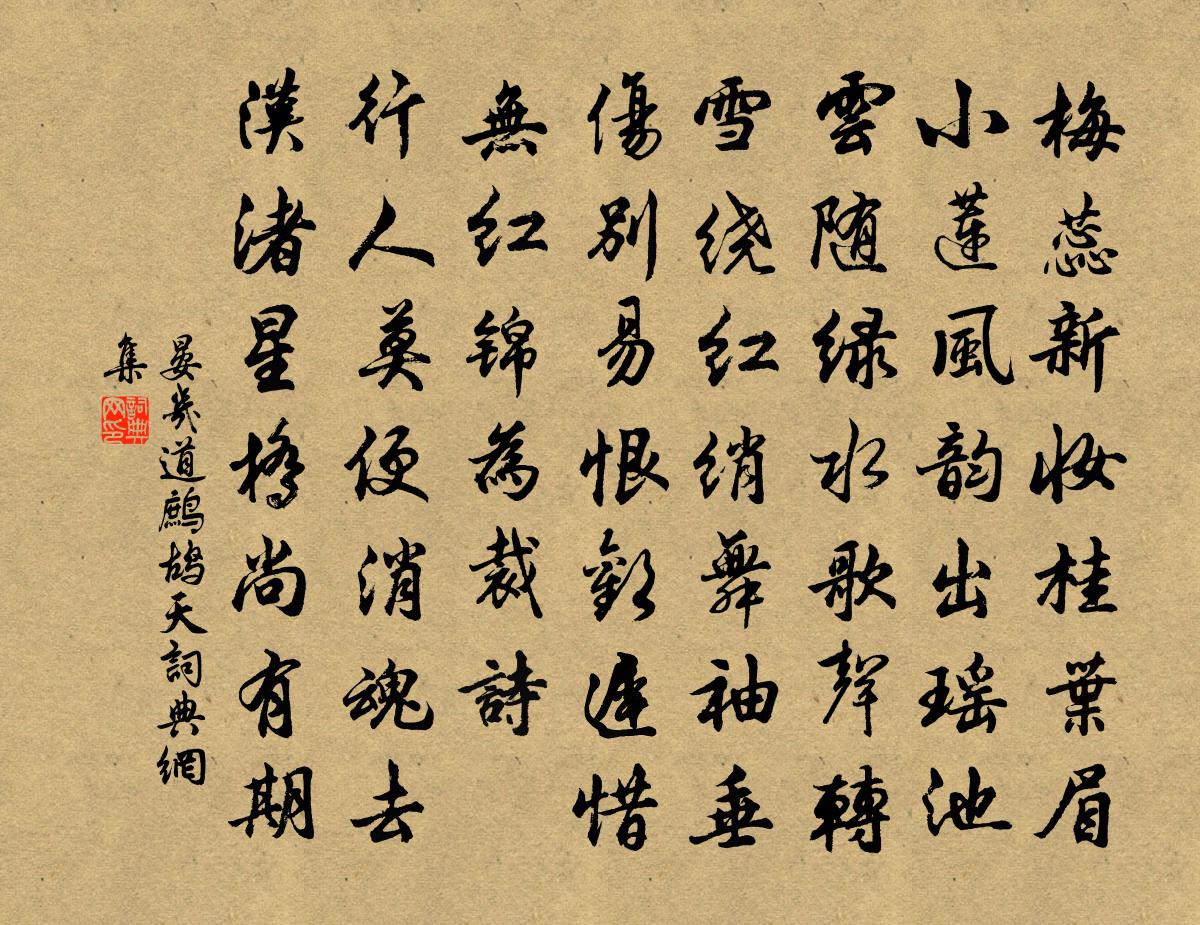 梅蕊新妆桂葉眉
小蓮風韵出瑶池
雲随绿水歌聲轉
雪绕红绡舞袖垂
傷别易恨歡遲惜
無红锦為裁詩
行人莫便消魂去
漢渚星橋尚有期
晏幾道鷓鴣天詞典網
集
詞典
网印